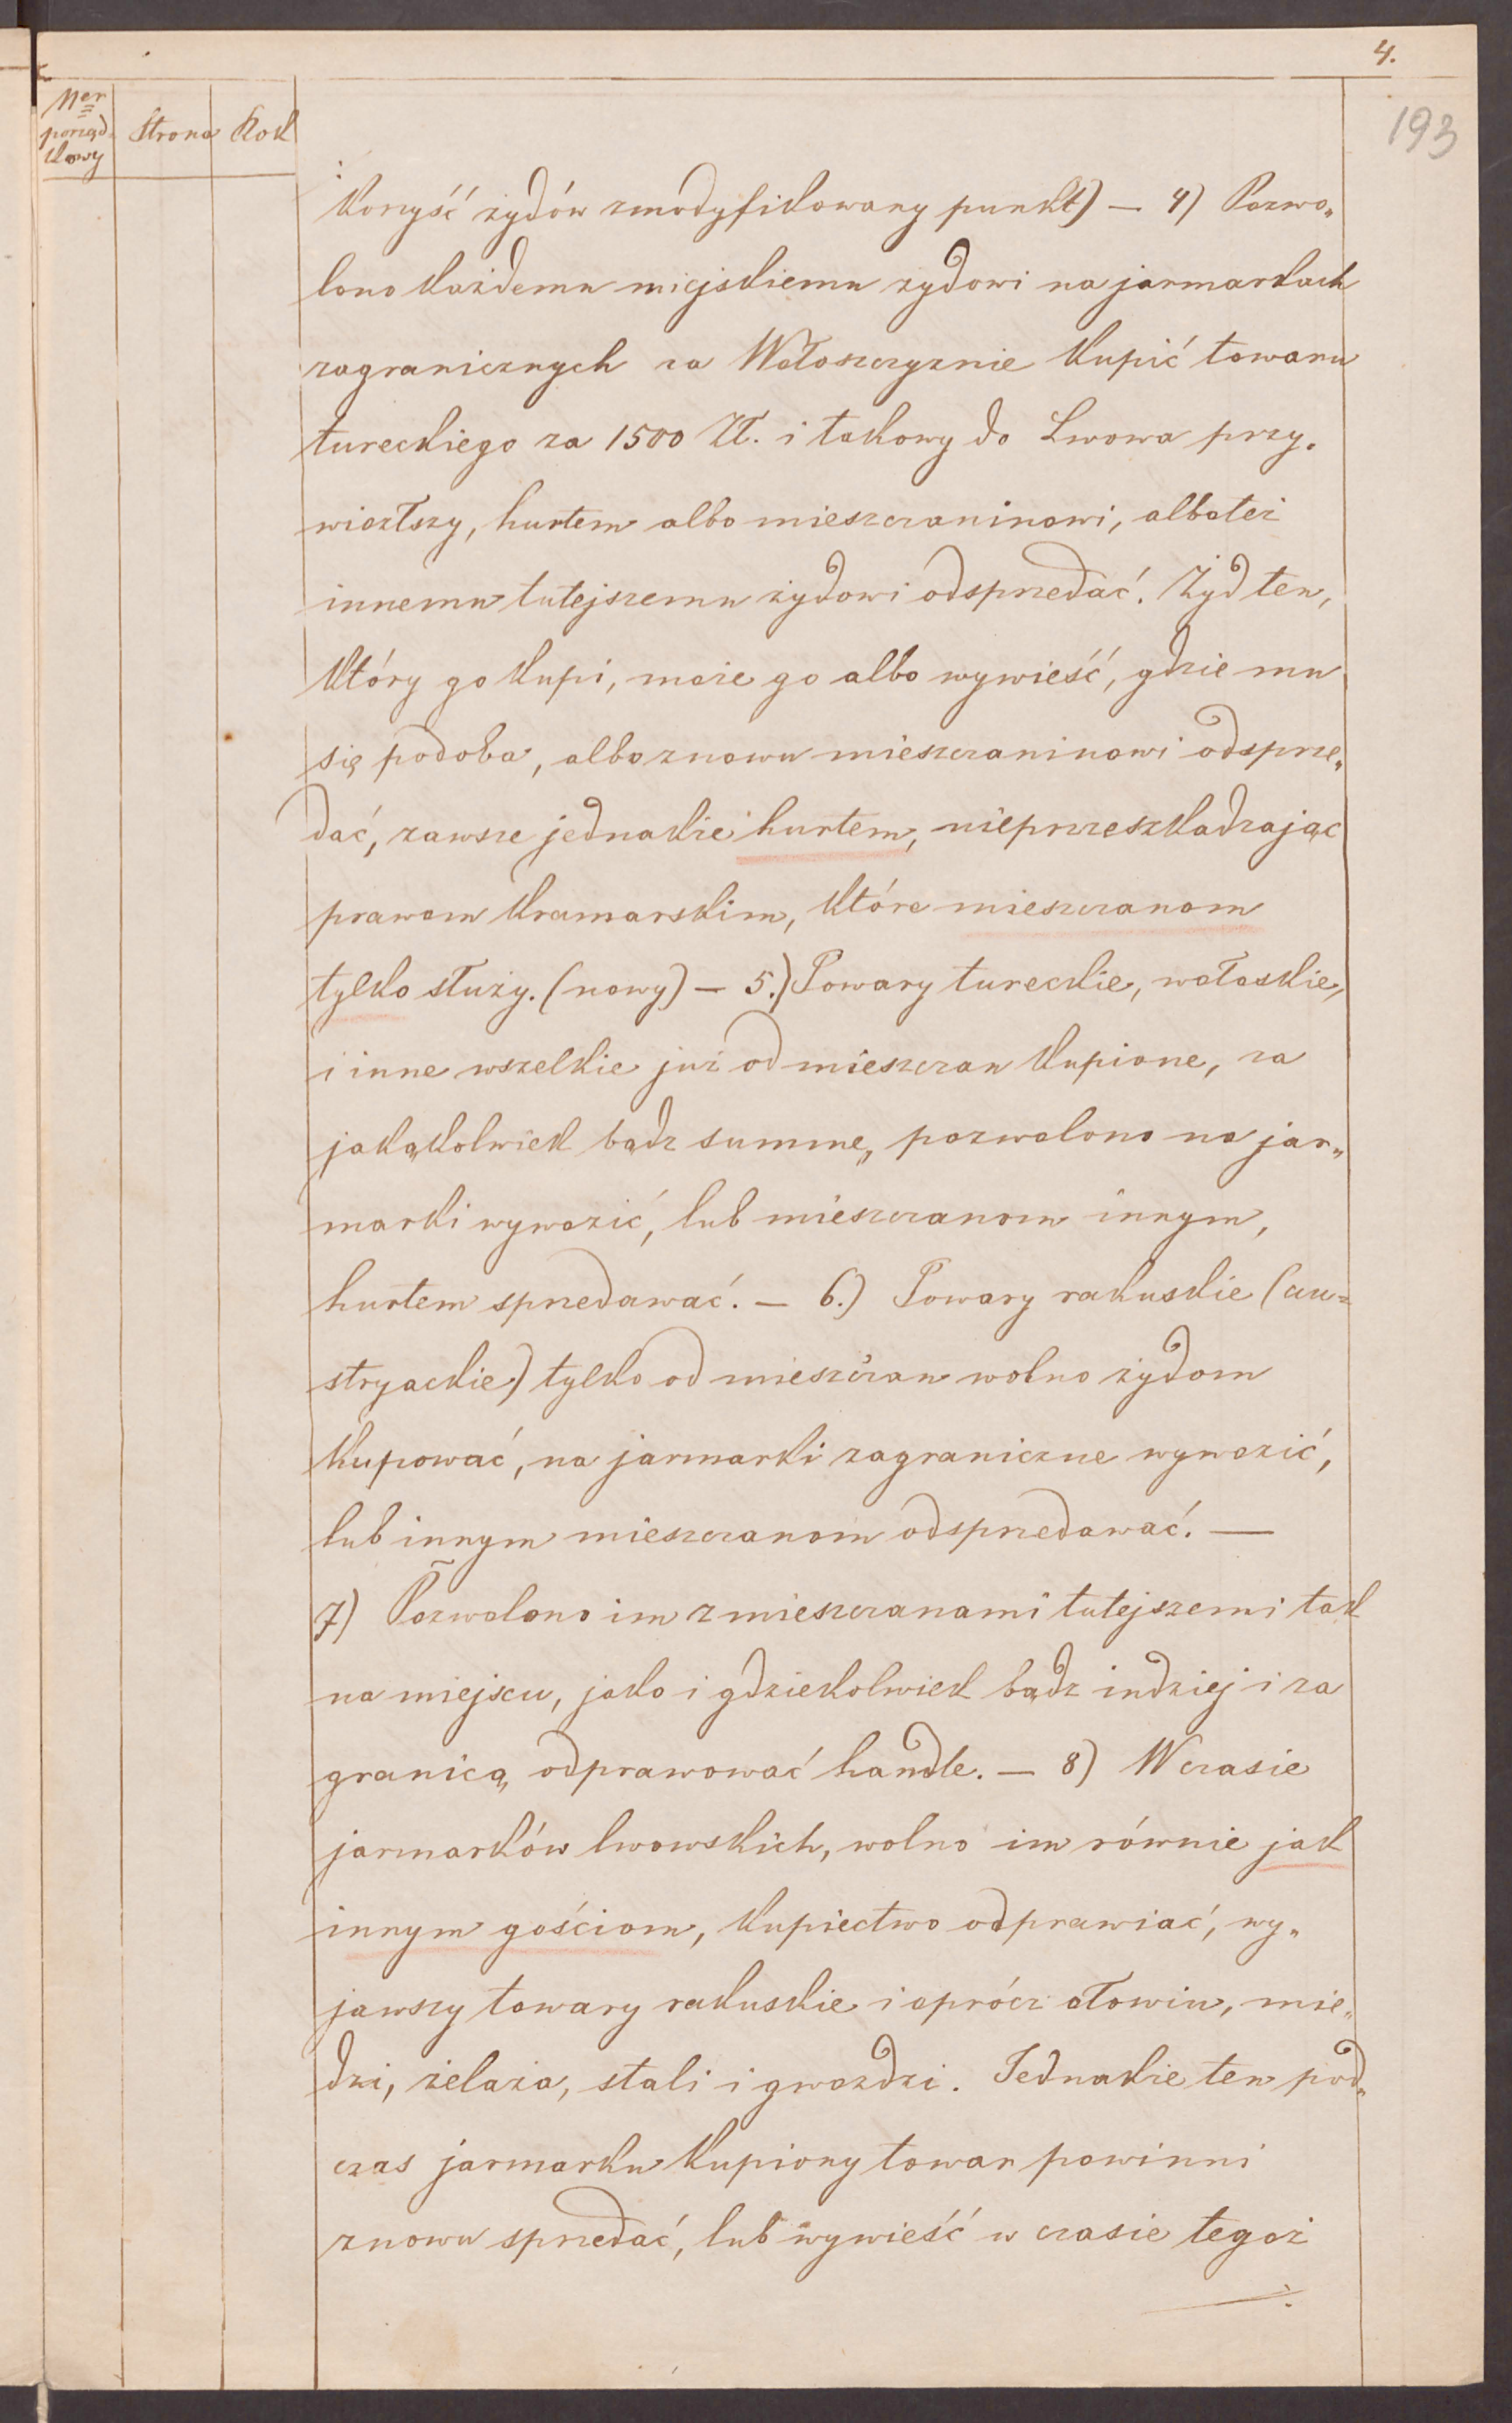 4.
193
Ner
porząd-
kowy
Strona
Rok
korzyść żydów zmodyfikowany punkt) — 4) Pozwo„
lono każdemu miejskiemu żydowi na jarmarkach
zagranicznych za Wołoszczyznie kupić towaru
tureckiego za 1500 Zł. i takowy do Lwowa przy„
wiozłszy, hurtem albo mieszczaninowi, alboteż
innemu tutejszemu żydowi odsprzedać. Żyd ten,
który go kupi, może go albo wywieść, gdzie mu
się podoba, albo znowu mieszczaninowi odsprze„
dać, zawsze jednakże hurtem, nieprzeszkadzając
prawom kramarskim, które mieszczanom
tylko służy. (nowy) — 5.) Towary tureckie, wołoskie,
i inne wszelkie już od mieszczan kupione, za
jakąkolwiek bądz summę, pozwolono na jar„
marki wywozić, lub mieszczanom innym,
hurtem sprzedawać. — 6.) Towary rakuskie (au=
stryackie) tylko od mieszczan wolno żydom
kupować, na jarmarki zagraniczne wywozić,
lub innym mieszczanom odsprzedawać. —
7) Pozwolono im z mieszczanami tutejszemi tak
na miejscu, jako i gdziekolwiek bądz indziej i za
granicą, odprawować handle. — 8) W czasie
jarmarków lwowskich, wolno im równie jak
innym gościom, kupiectwo odprawiać, wy„
jawszy towary rakuskie i oprócz ołowiu, mie„
dzi, żelaza, stali i gwozdzi. Jednakże ten pod„
czas jarmarku kupiony towar powinni
znowu sprzedać, lub wywieść w czasie tegoż